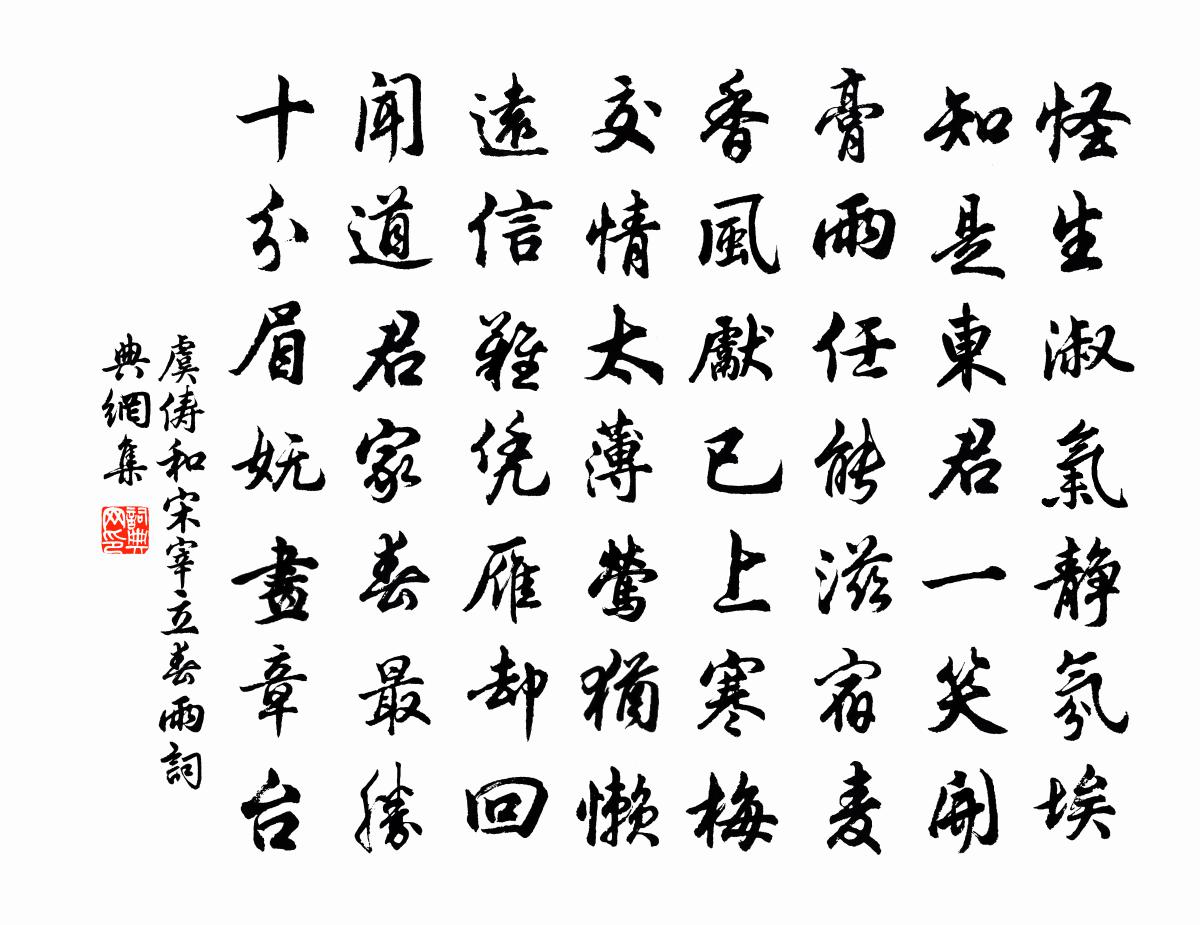 怪生淑氣静氛埃
知是東君一笑開
膏雨任能滋宿麦
香風獻已上寒梅
交情太薄鶯猶懒
遠信難凭雁却回
闻道君家春最勝
十分眉妩畫章台
虞儔和宋宰立春雨詞
典網集
詞典网印